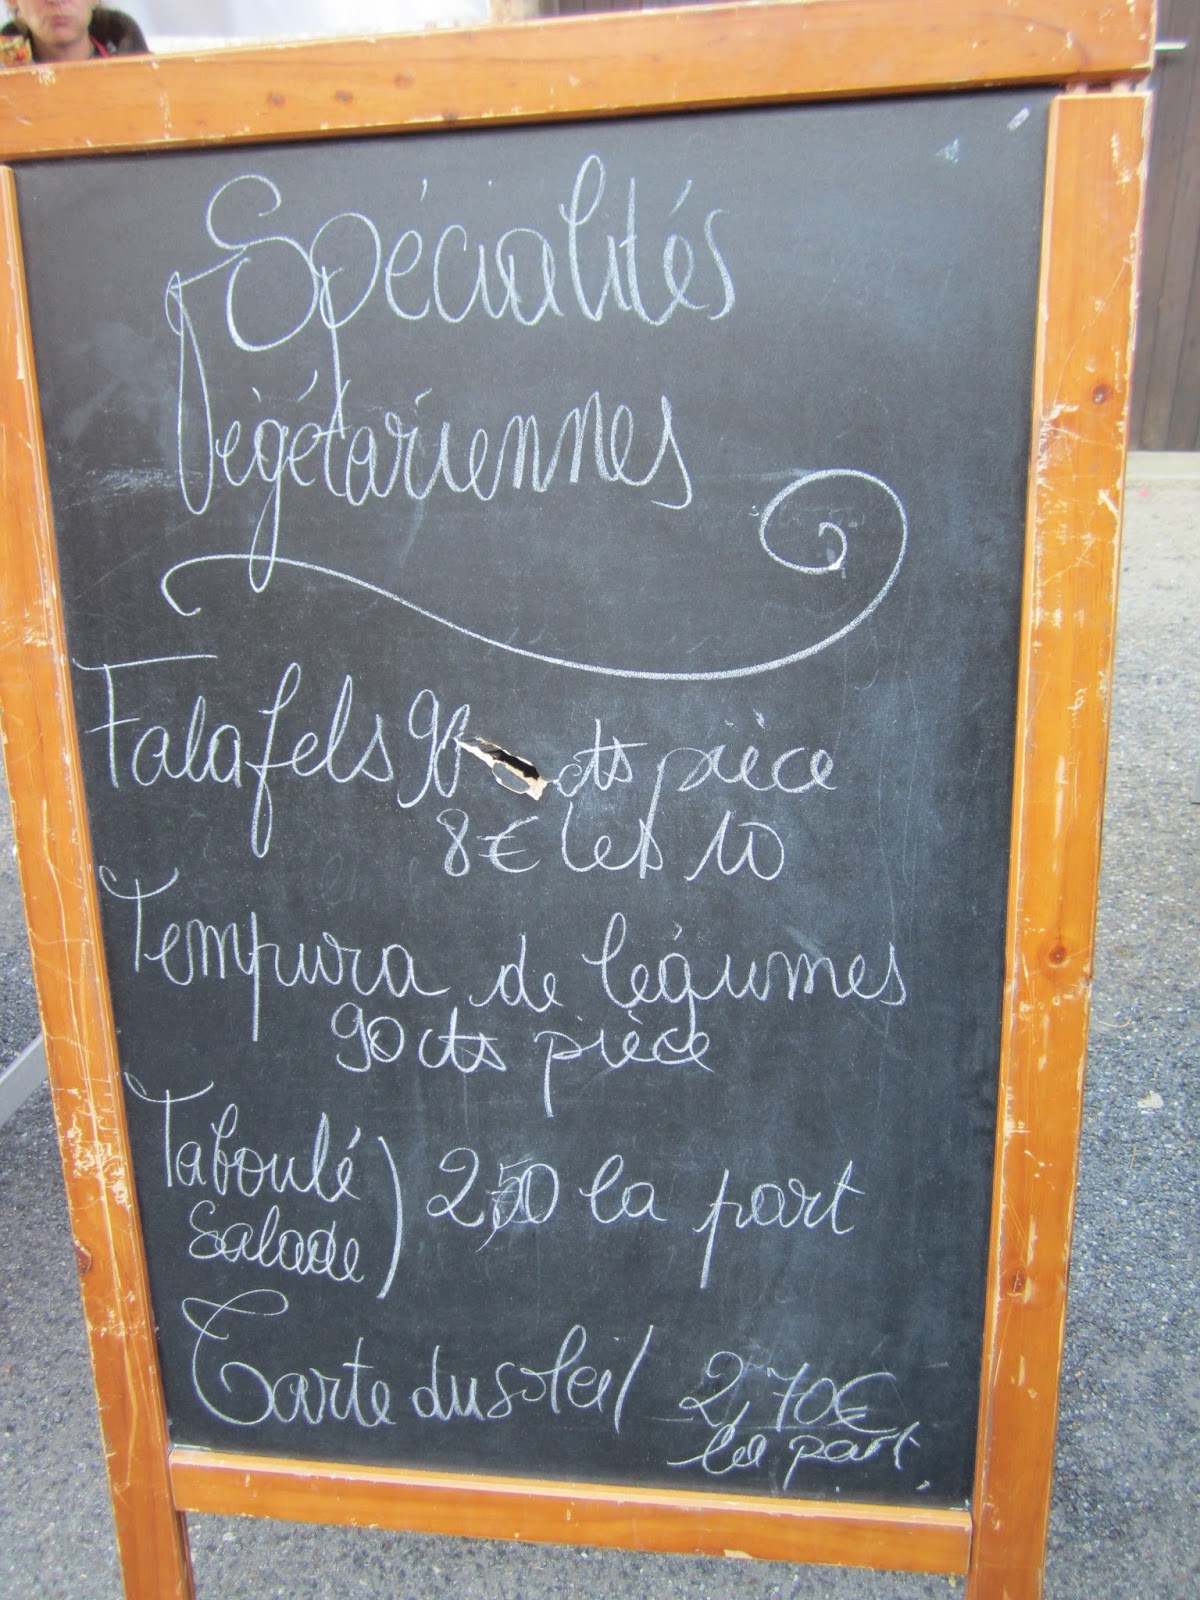 Spécialités
Végétariennes
Falafels 90 cts pièce
8€ les 10
Tempura de légumes
90 cts pièce
Taboulé
Salade ) 2,50 la part
Tarte du soleil 2,70€
la part